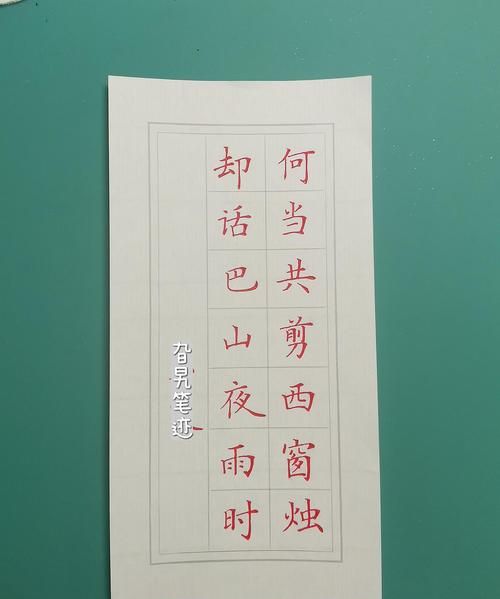 何当共剪西窗烛
却话巴山夜雨时
旮旯笔迹